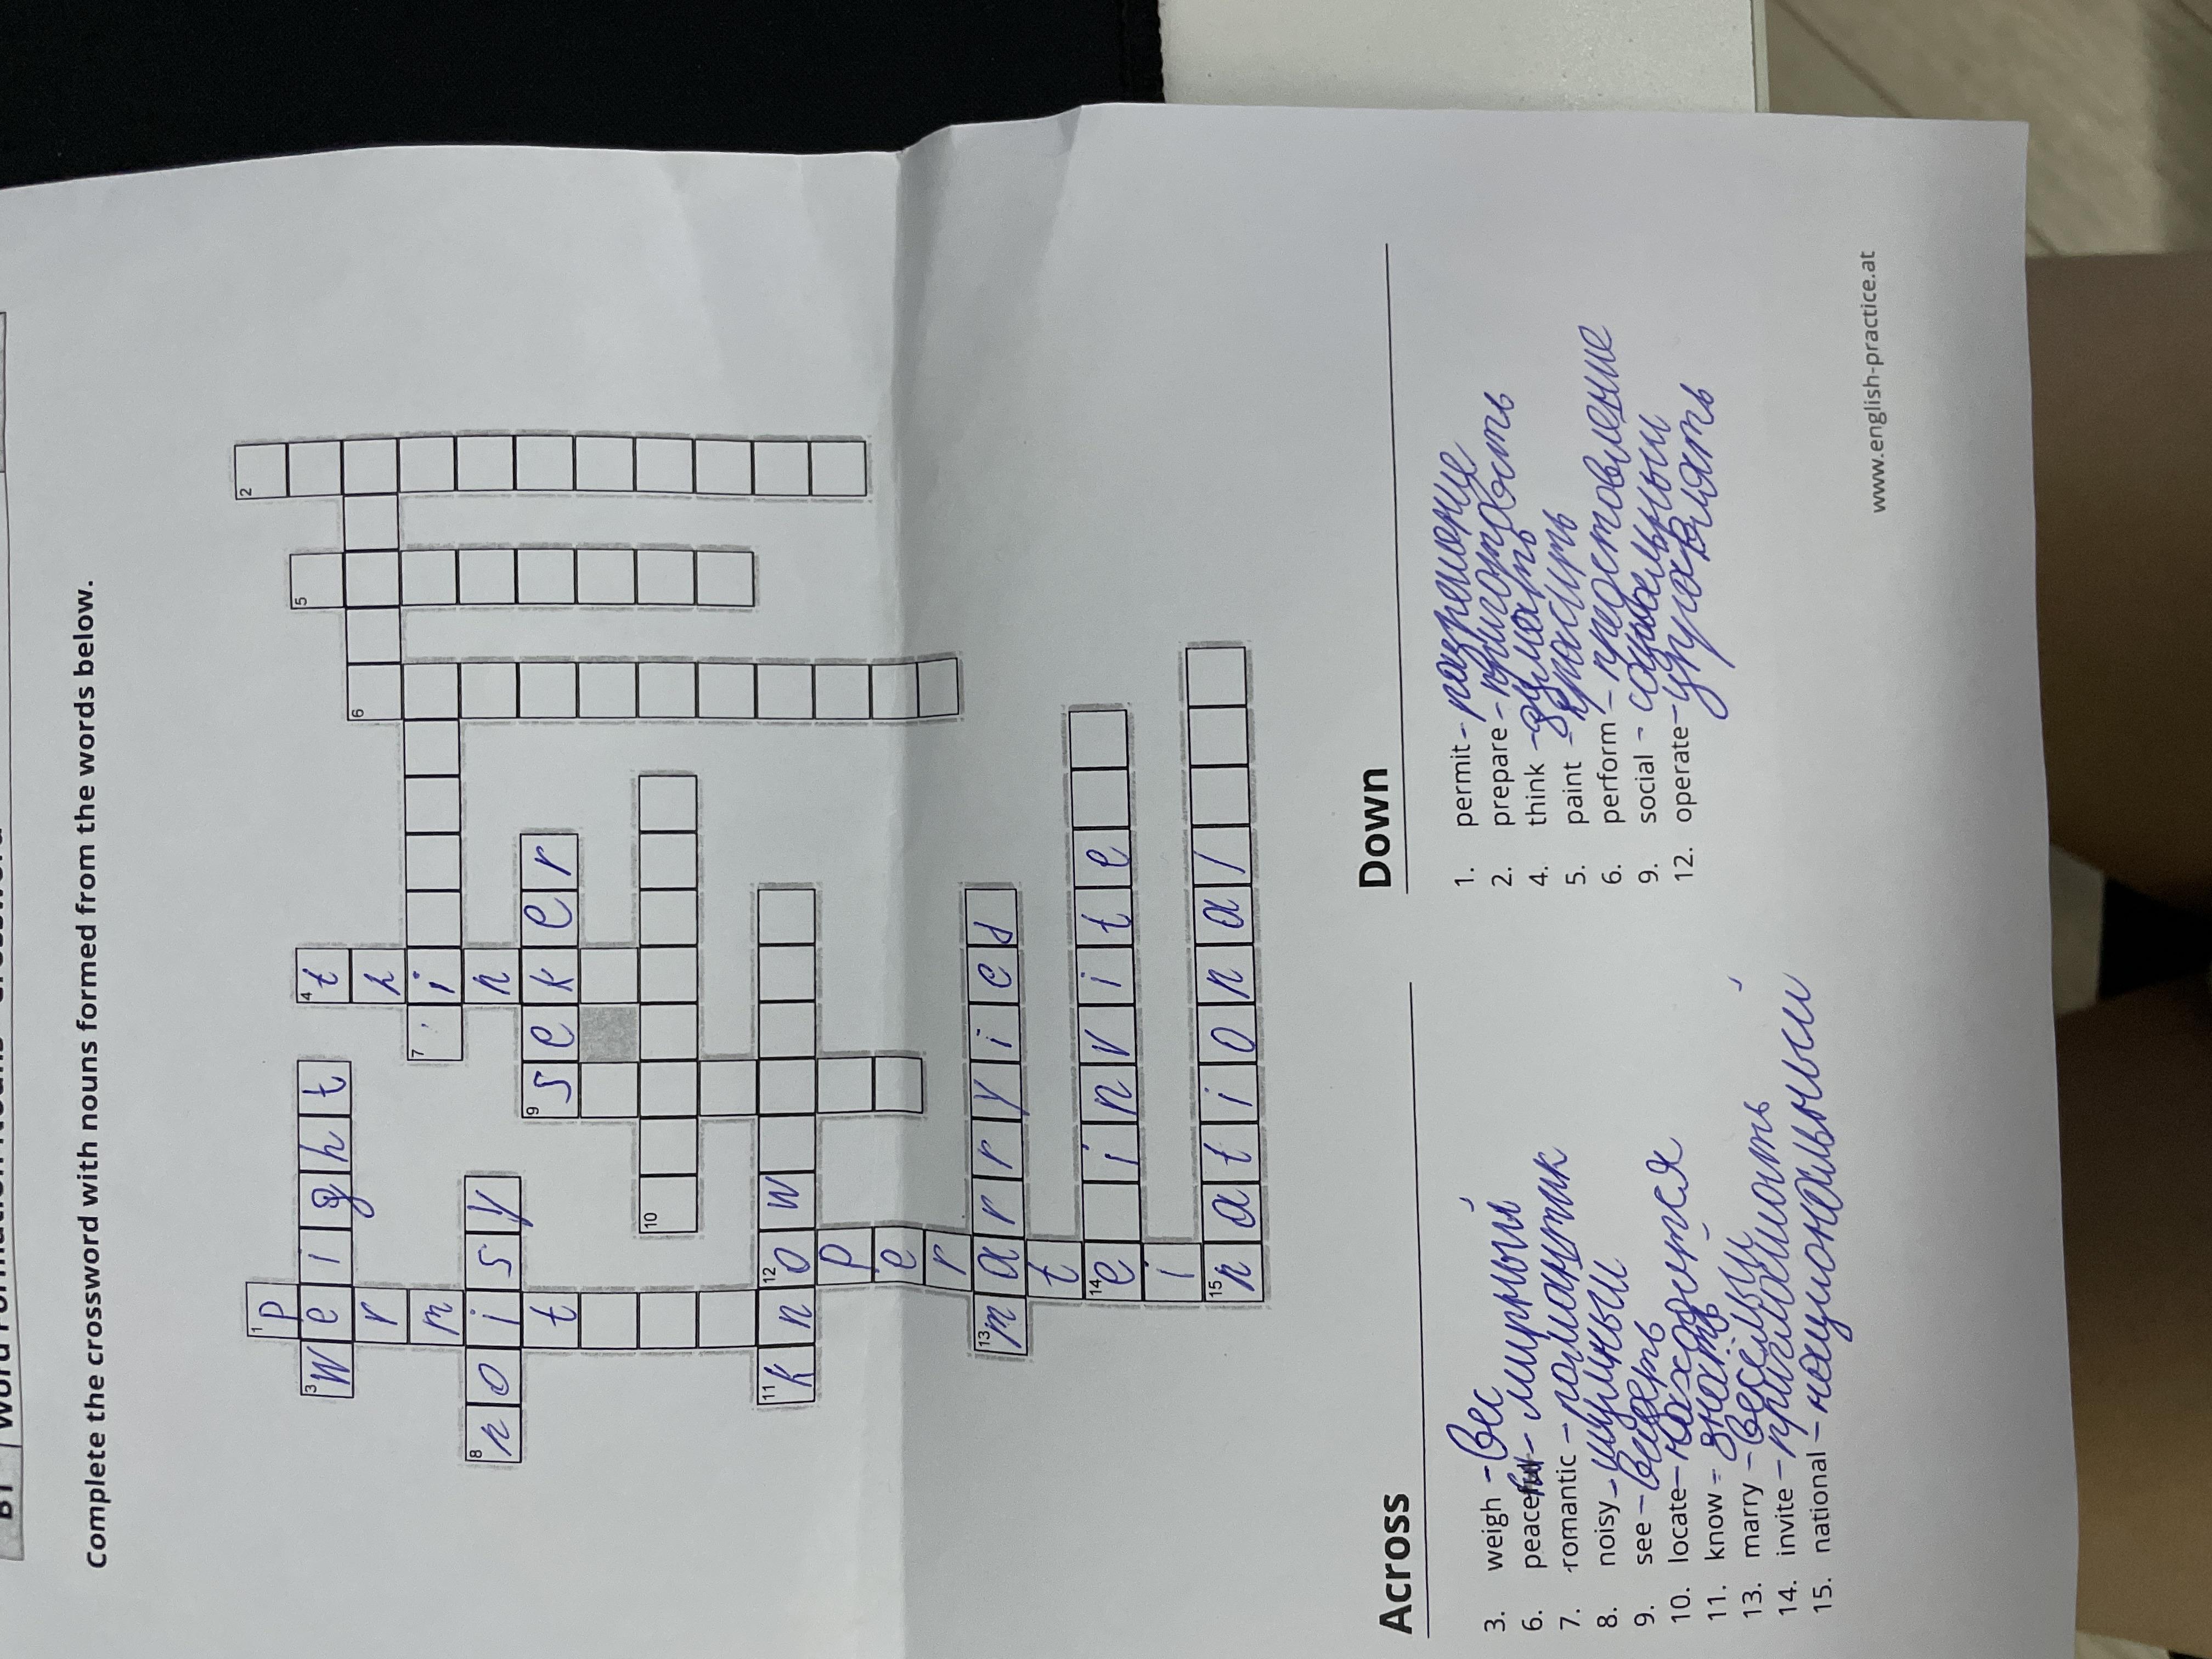 Complete the crossword with nouns formed from the words below.
1 p
2
3 W e i g h t
4 t
5
h
6
r
7 i
m
8 n o i s y
n
9 s e e k e r
t
10
11 k n 12 o w
p
e
r
13 m a r r y i e d
t
14 e i n v i t e
i
15 n a t i o n a l
Across
3. weigh - Вес
6. peaceful - мирный
7. romantic - романтик
8. noisy - шумный
9. see - видеть
10. locate - находится
11. know - знать
13. marry - веселый
14. invite - приглашать
15. national - национальный
Down
1. permit - разрешение
2. prepare - приготовить
4. think - думать
5. paint - красить
6. perform - представление
9. social - социальный
12. operate - управлять
www.english-practice.at